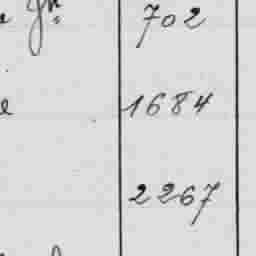 702
1684
2267